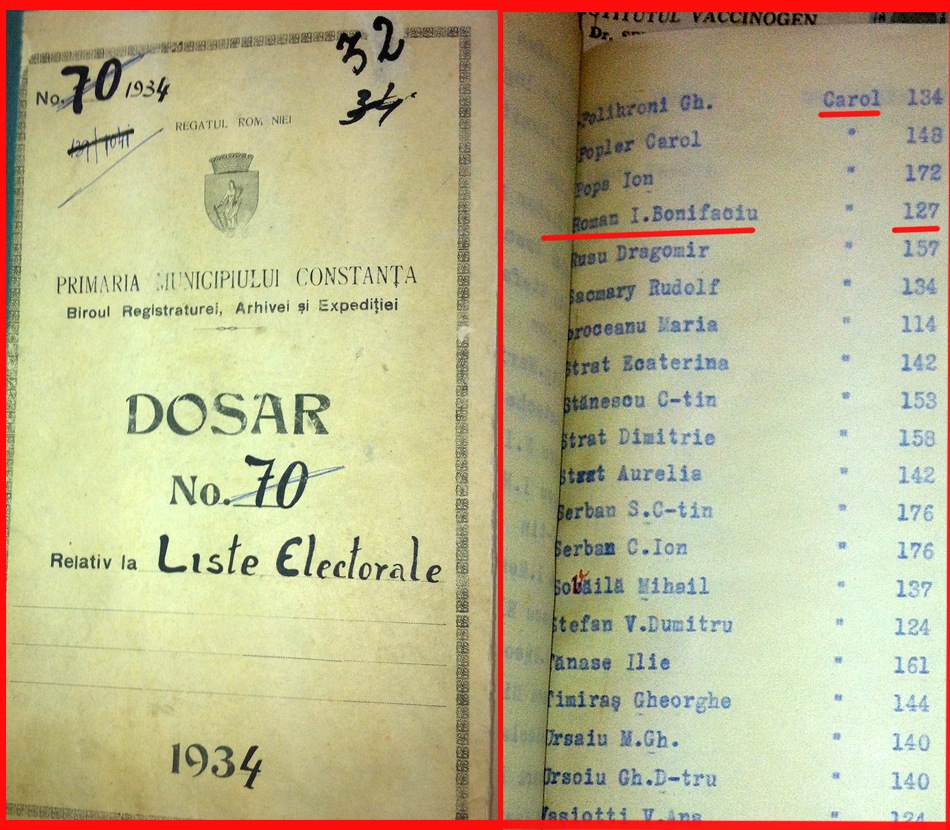 32
No. 70 1934
34
REGATUL ROM NIEI
PRIMARIA MUNICIPIULUI CONSTANȚA
Biroul Registraturei, Arhivei și Expediției
DOSAR
No. 70
Relativ la Liste Electorale
1934
STITUTUL VACCINOGEN
Dr.
Polihroni Gh. Carol 134
Popler Carol " 148
Popa Ion " 172
Roman I.Bonifaciu " 127
Rusu Dragomir " 157
Sacmary Rudolf " 134
oroceanu Maria " 114
Strat Ecaterina " 142
Stănescu C-tin " 153
Strat Dimitrie " 158
Strat Aurelia " 142
Serban S.C-tin " 176
Serban C.Ion " 176
Mihail " 137
Stefan V.Dumitru " 124
Tănase Ilie " 161
Timiraș Gheorghe " 144
Ursaiu M.Gh. " 140
Ursoiu Gh.D-tru " 140
Vasiotti V.Ana " 124